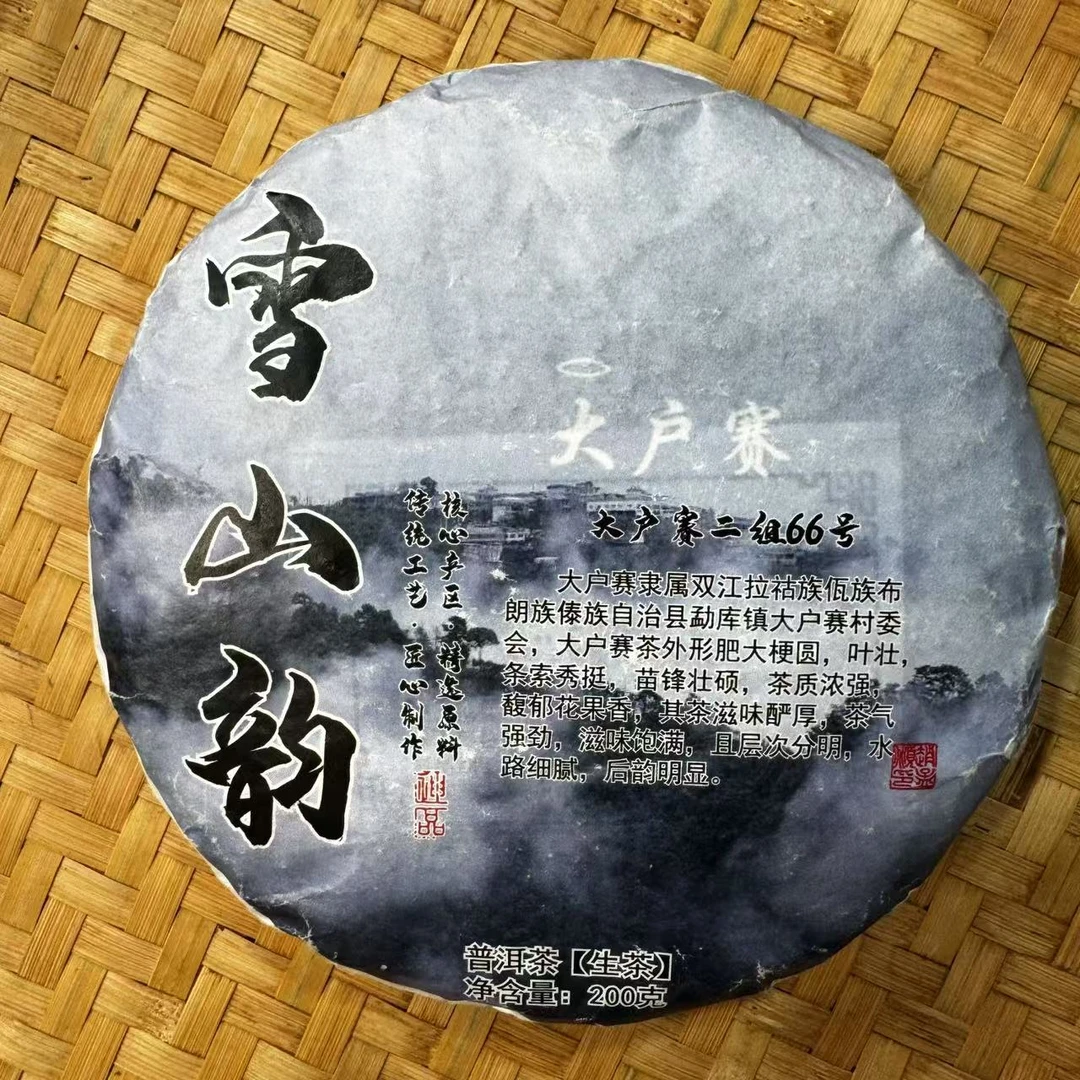 雪山韵
大户赛
大户赛二组66号
核心产区·精选原料
传统工艺·匠心制作
大户赛隶属双江拉祜族佤族布
朗族傣族自治县勐库镇大户赛村委
会，大户赛茶外形肥大梗圆，叶壮，
条索秀挺，苗锋壮硕，茶质浓强，
馥郁花果香，其茶滋味酽厚，茶气
强劲，滋味饱满，且层次分明，水
路细腻，后韵明显。
普洱茶【生茶】
净含量：200克